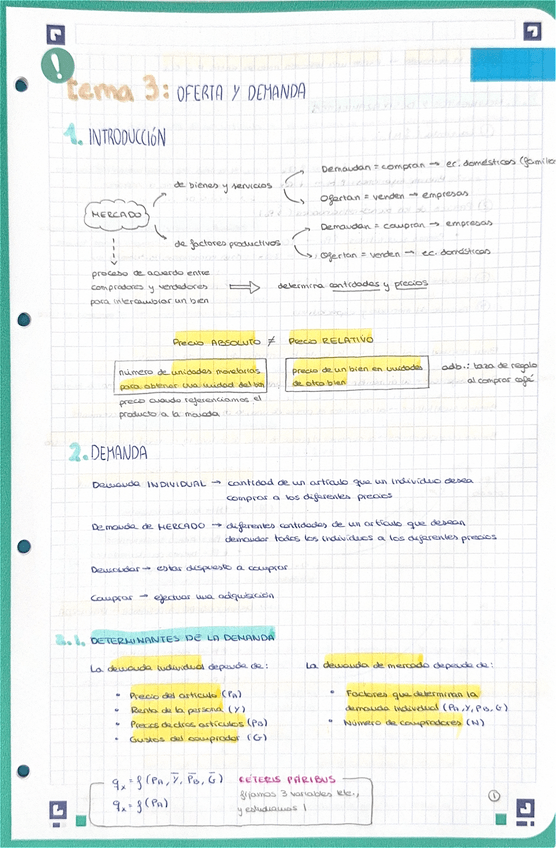 !
tema 3: OFERTA Y DEMANDA
1. INTRODUCCIÓN
MERCADO
de bienes y servicios
Demandan = compran → ec. domésticos (familia
Ofertan = venden → empresas
de factores productivos
Demandan = compran → empresas
Ofertan = venden → ec. domésticos
proceso de acuerdo entre
compradores y vendedores
para intercambiar un bien
⇒ determina cantidades y precios
Precio ABSOLUTO ≠ Precio RELATIVO
número de unidades monetarias
para obtener una unidad del bien
precio cuando referenciamos el
producto a la moneda
precio de un bien en unidades
de otro bien
adb.: taza de regalo
al comprar café
2. DEMANDA
Demanda INDIVIDUAL → cantidad de un artículo que un individuo desea
comprar a los diferentes precios
Demanda de MERCADO → diferentes cantidades de un artículo que desean
demandar todos los individuos a los diferentes precios
Demandar → estar dispuesto a comprar
Comprar → efectuar una adquisición
2.1. DETERMINANTES DE LA DEMANDA
La demanda individual depende de:
• Precio del artículo (PA)
• Renta de la persona (Y)
• Precios de otros artículos (PB)
• Gustos del comprador (G)
La demanda de mercado depende de:
• Factores que determinan la
demanda individual (PA, Y, PB, G)
• Número de compradores (N)
qx = f (PA, Y̅, P̅B, G̅)
qx = f (PA)
CETERIS PARIBUS
fijamos 3 variables
y estudiamos 1
1